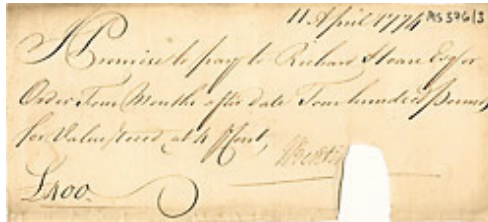 11 April 1774 MS 396/3
I Promise to pay to Richard Sloane Esqr or
Order Four Months after date Four hundred Pounds
for Value recd at 4 P Cent,
£400